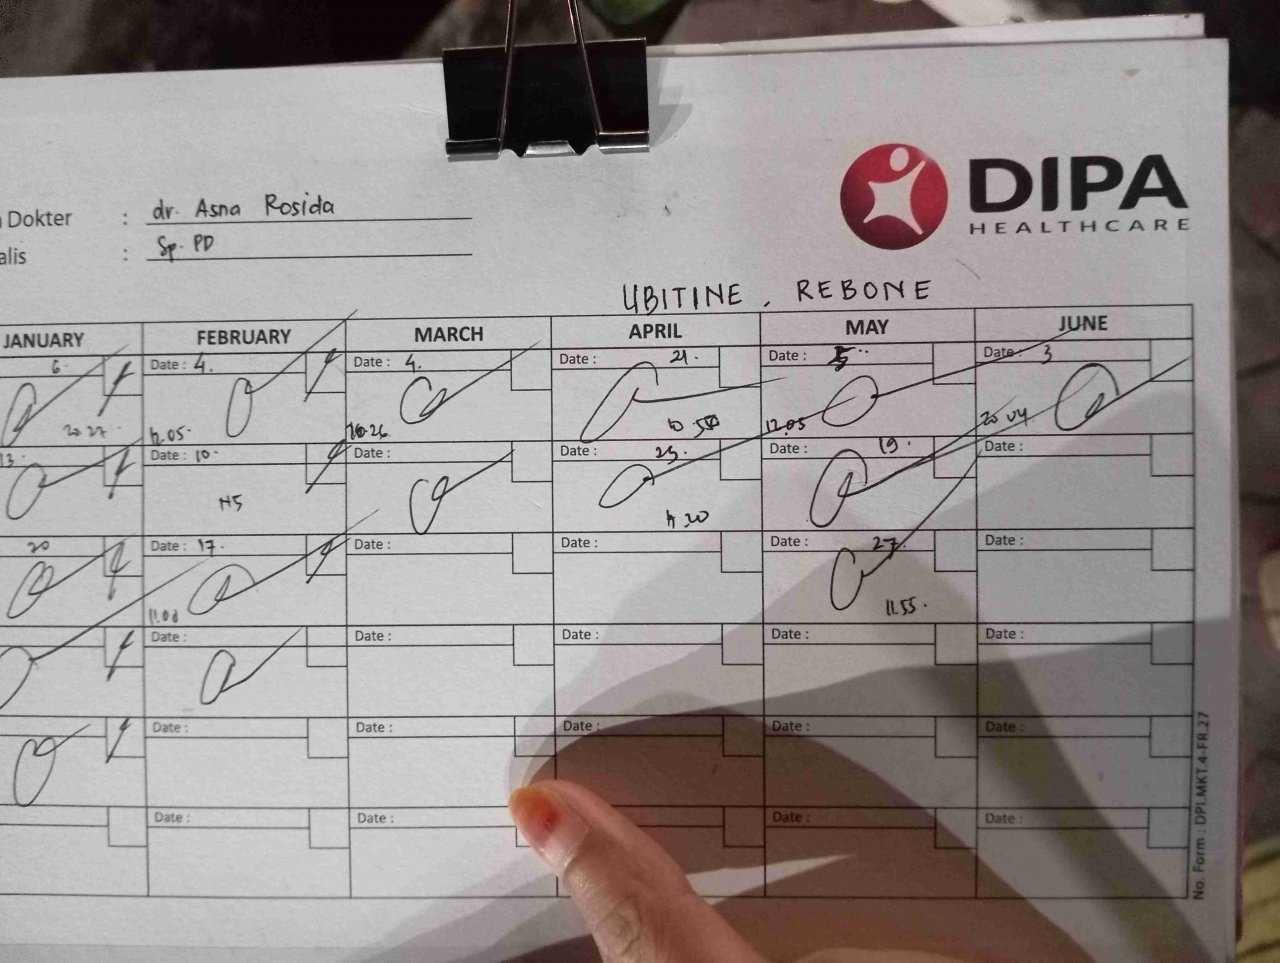 DIPA
HEALTHCARE
Dokter : dr. Asna Rosida
alis : Sp. PD
UBITINE, REBONE
JANUARY FEBRUARY MARCH APRIL MAY JUNE
6. Date : 4. Date : 4. Date : 21. Date : 5 Date : 3
20.27 12.05
13. Date : 10. Date : Date : Date : 19. Date :
NS
20 Date : 17. Date : Date : Date : 27. Date :
11.55.
Date : Date : Date : Date : Date :
Date : Date : Date : Date : Date :
Date : Date : Date : Date :
No. Form : DPI.MKT.4-FR.27